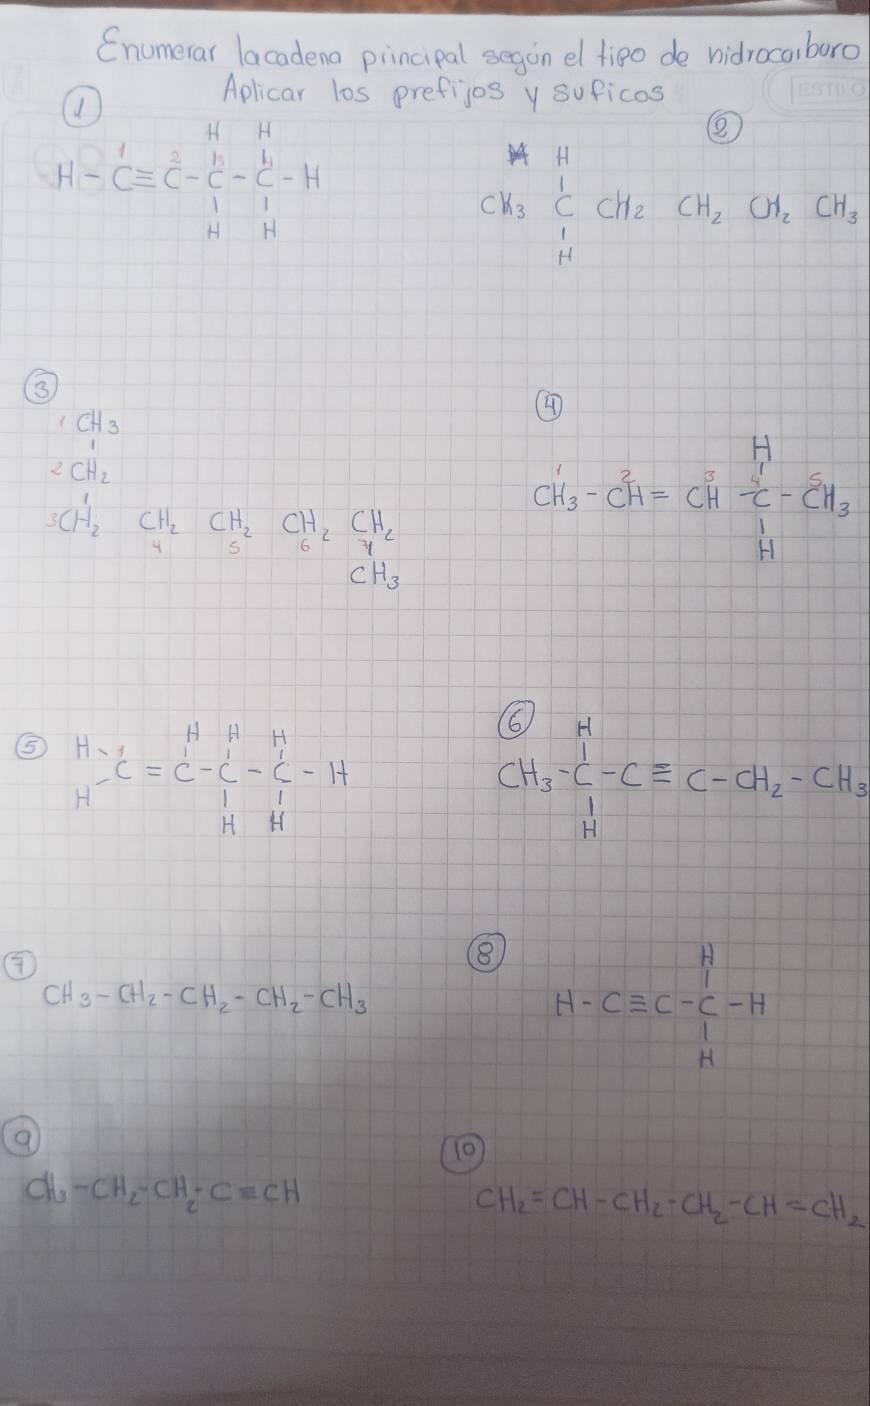 Enumerar lacadena principal según el tipo de hidrocarburo
Aplicar los prefijos y suficos
ESTILO
1
H H
1 2 3 4
H - C ≡ C - C - C - H
H H
2
H
CH3 C CH2 CH2 CH2 CH3
H
3
1 CH3
2 CH2
3 CH2 CH2 CH2 CH2 CH2
4 5 6 7
CH3
4
H
1 2 3 4 5
CH3 - CH = CH - C - CH3
H
5
H H H
H 1
C = C - C - C - H
H
H H
6
H
CH3 - C - C ≡ C - CH2 - CH3
H
7
CH3 - CH2 - CH2 - CH2 - CH3
8
H
H - C ≡ C - C - H
H
9
CH3 - CH2 - CH2 - C ≡ CH
10
CH2 = CH - CH2 - CH2 - CH = CH2